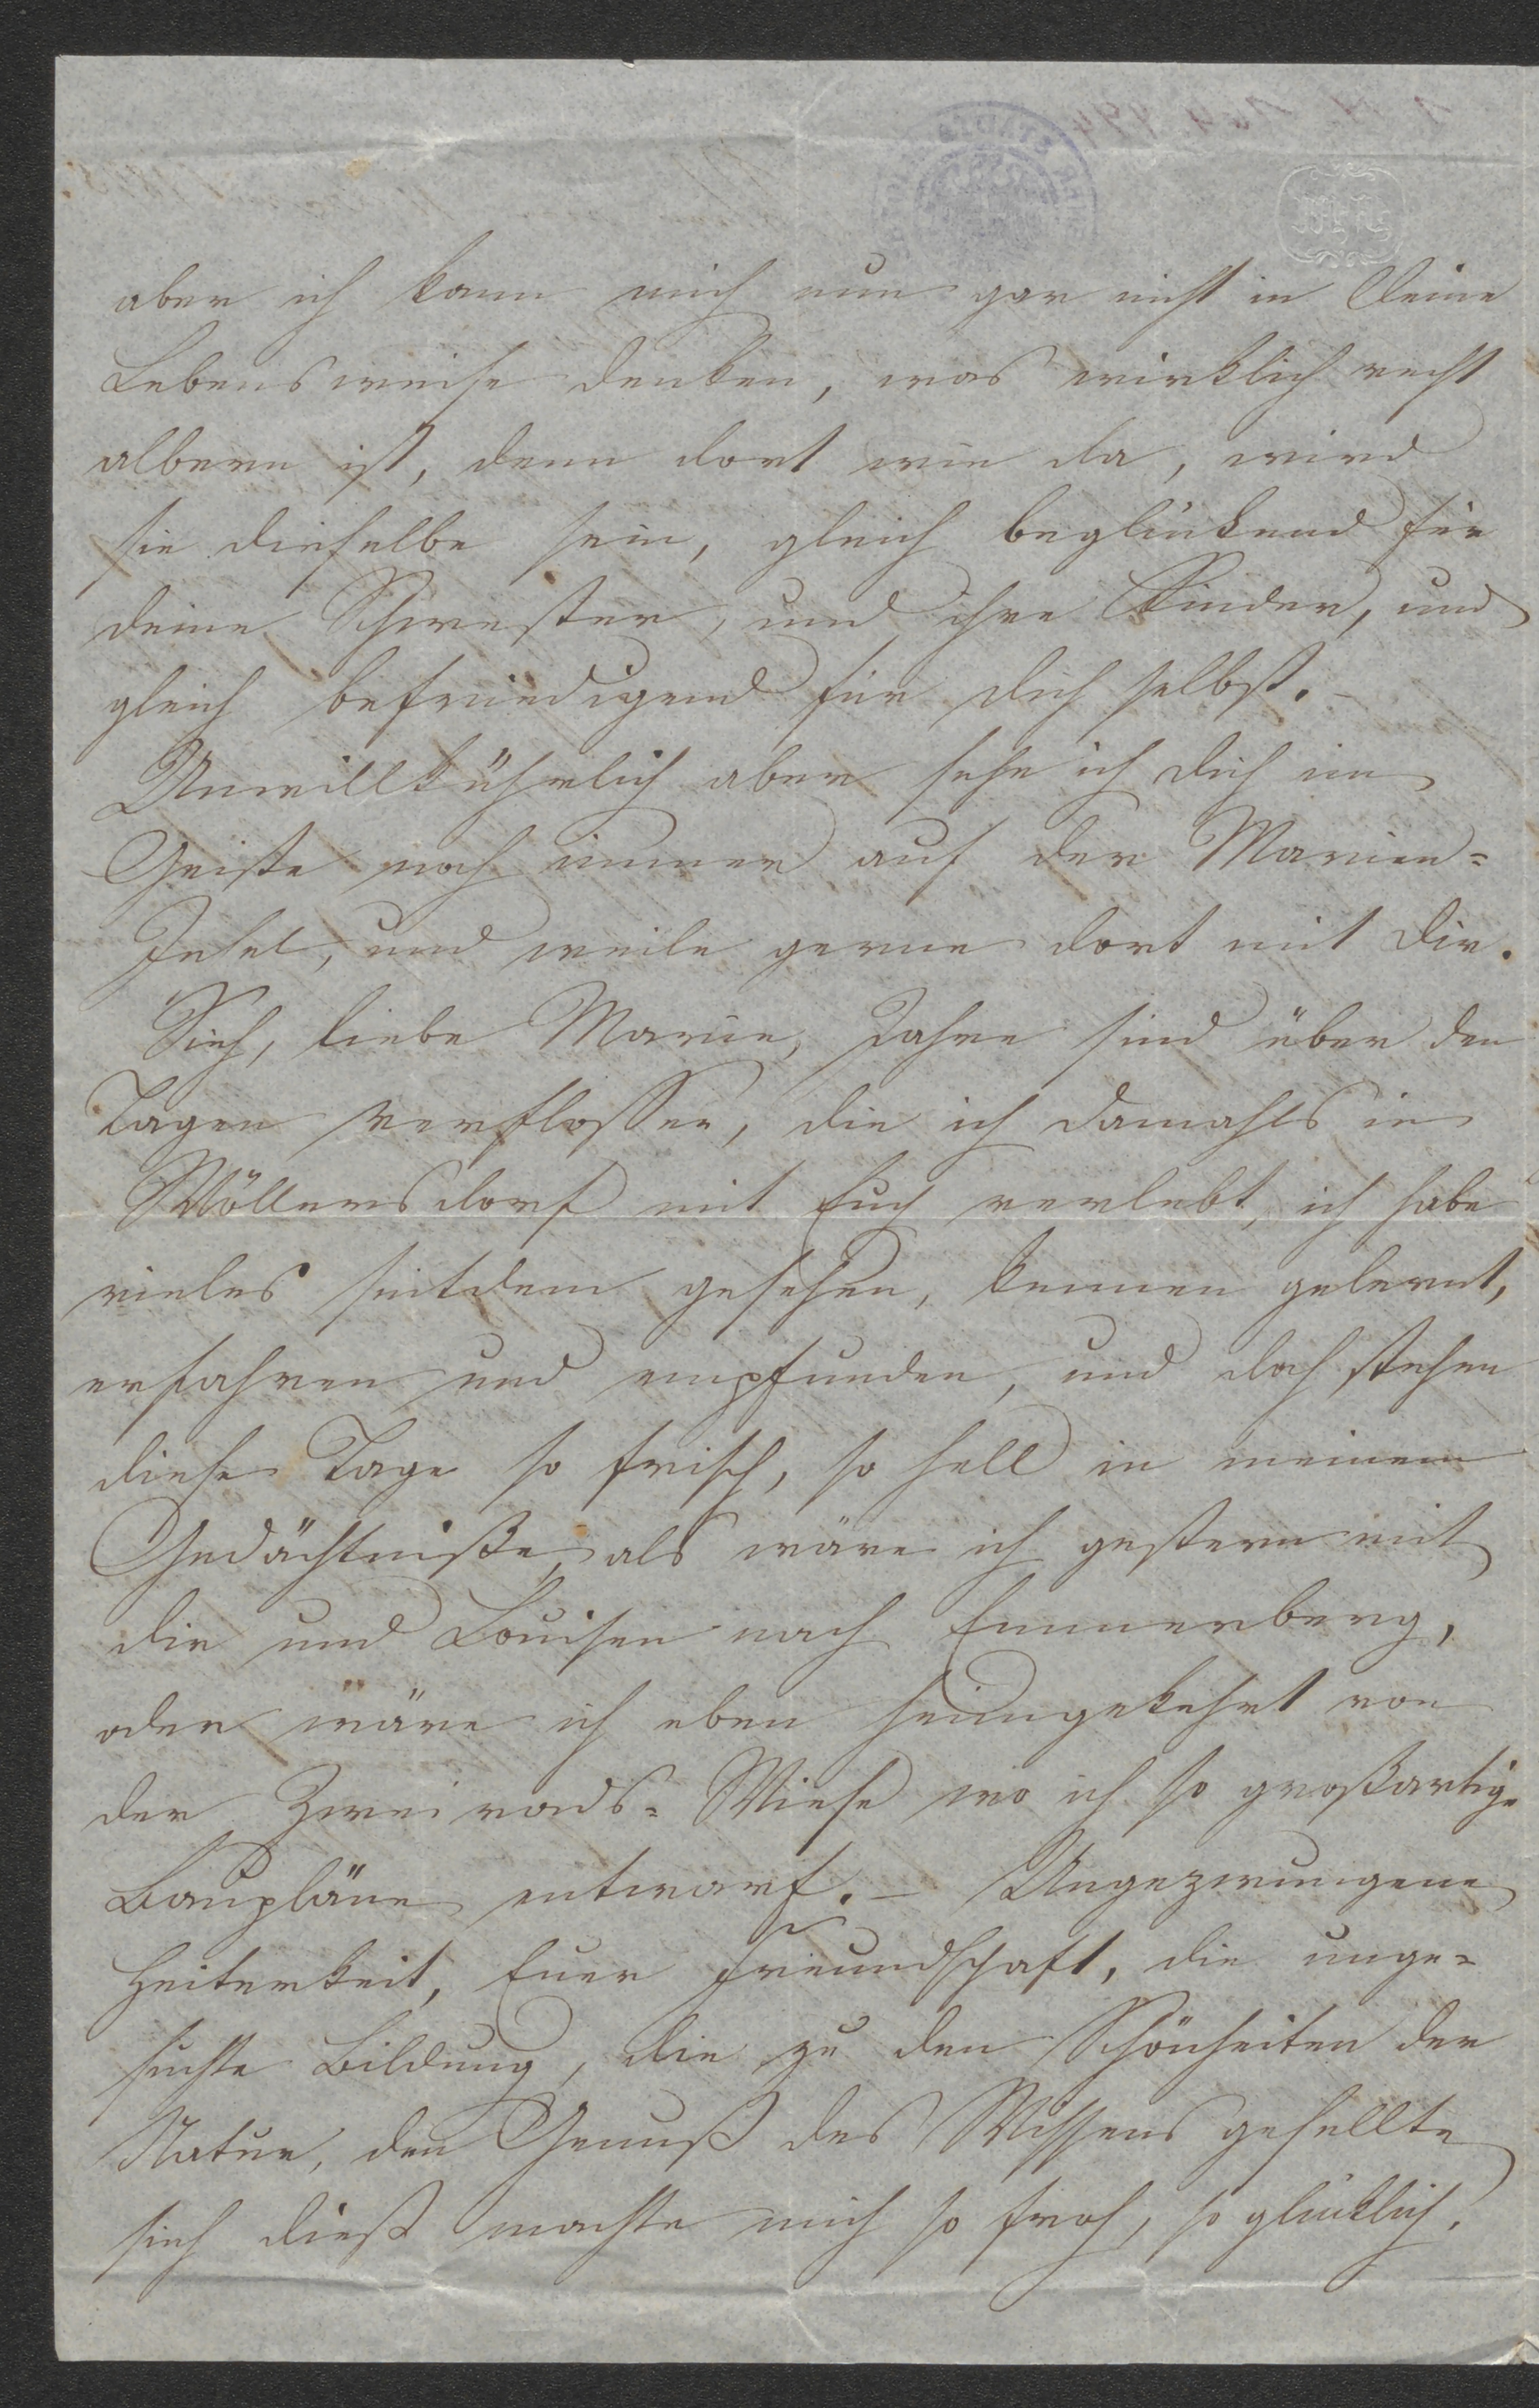 aber ich kann mich nun gar nicht in Deine
Lebensweise denken, was wirklich recht
albern ist, denn dort wie da, wird
sie dieselbe sein, gleich beglückend für
deine Schwester, und ihre Kinder, und
gleich befriedigend für dich selbst. –
Unwillkührlich aber sehe ich dich im
Geiste noch immer auf der Marien=
Insel, und weile gerne dort mit dir.
Sieh, liebe Marie, Jahre sind über den
Tagen verflossen, die ich damahls in
Wöllersdorf mit Euch verlebt, ich habe
vieles seitdem gesehen, kennen gelernt,
erfahren und empfunden, und doch stehen
diese Tage so frisch, so hell in meinem
Gedächtniße, als wäre ich gestern mit
dir und Louisen nach Emmerberg,
oder wäre ich eben heimgekehrt von
der Zweirads=Wiese wo ich so großartige
Baupläne entwarf. – Ungezwungene
Heiterkeit, Euer Freundschaft, die unge=
suchte Bildung, die zu den Schönheiten der
Natur, den Genuß des Wissens gesellte
sieh dieß machte mich so froh, so glücklich.